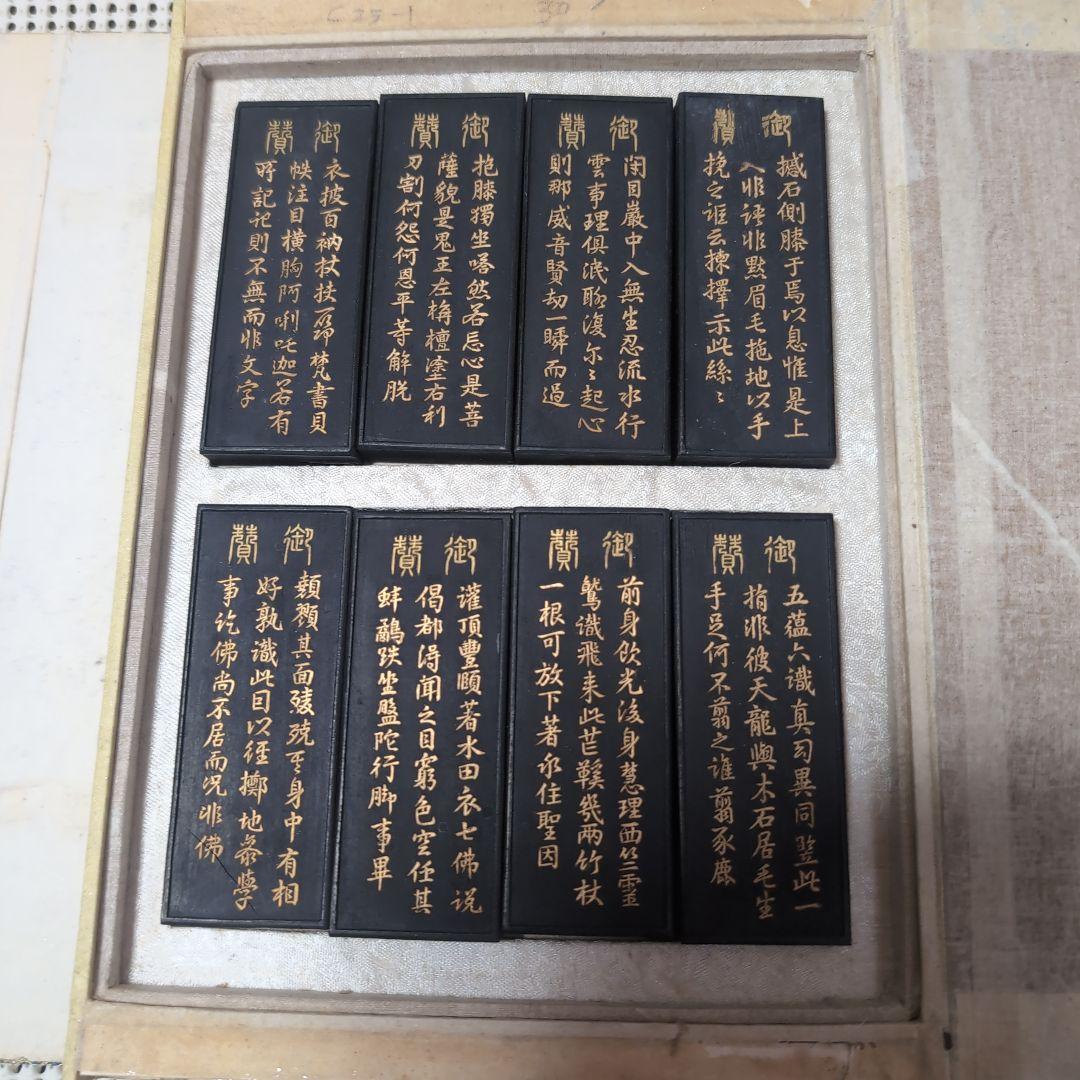 C25-1
御贊
撼石側膝于焉以息惟是上
入非語非默眉毛拖地以手
挽之誰云揀擇示此絲〻
御贊
閉目巖中入無生忍流水行
雲事理俱泯聊復尔〻起心
則那威音賢劫一瞬而過
御贊
抱膝獨坐嗒然若忘心是菩
薩貌是鬼王左栴檀塗右利
刀割何怨何恩平等解脫
御贊
衣披百衲杖扶一笻梵書貝
帙注目橫胸阿唎吒迦若有
所記記則不無而非文字
御贊
五蘊六識真勾異同豎此一
指非彼天龍與木石居毛生
手足何不翦之誰翦豕鹿
御贊
前身飲光後身慧理西竺靈
鷲識飛來此芒鞵幾兩竹杖
一根可放下著永住聖因
御贊
灌頂豐頤著水田衣七佛說
偈都得聞之目窮色空任其
蚌鷸趺坐盤陀行脚事畢
御贊
其面其身中有相
好孰識此目以經擲地參學
事訖佛尚不居而况非佛